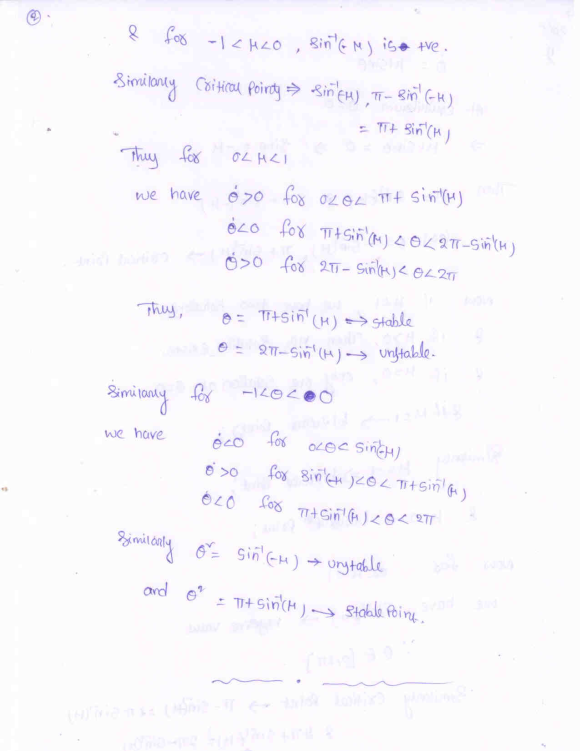 ④.
& for -1 < μ < 0 , sin⁻¹(-μ) is +ve.
Similarly Critical Points ⇒ sin⁻¹(-μ), π - sin⁻¹(-μ)
= π + sin⁻¹(μ)
Thus for 0 < μ < 1
we have θ̇ > 0 for 0 < θ < π + sin⁻¹(μ)
θ̇ < 0 for π + sin⁻¹(μ) < θ < 2π - sin⁻¹(μ)
θ̇ > 0 for 2π - sin⁻¹(μ) < θ < 2π
Thus, θ = π + sin⁻¹(μ) → stable
θ = 2π - sin⁻¹(μ) → unstable.
Similarly for -1 < θ < 0
we have θ̇ < 0 for 0 < θ < sin⁻¹(-μ)
θ̇ > 0 for sin⁻¹(-μ) < θ < π + sin⁻¹(μ)
θ̇ < 0 for π + sin⁻¹(μ) < θ < 2π
Similarly θ = sin⁻¹(-μ) → unstable
and θ = π + sin⁻¹(μ) → stable Point.